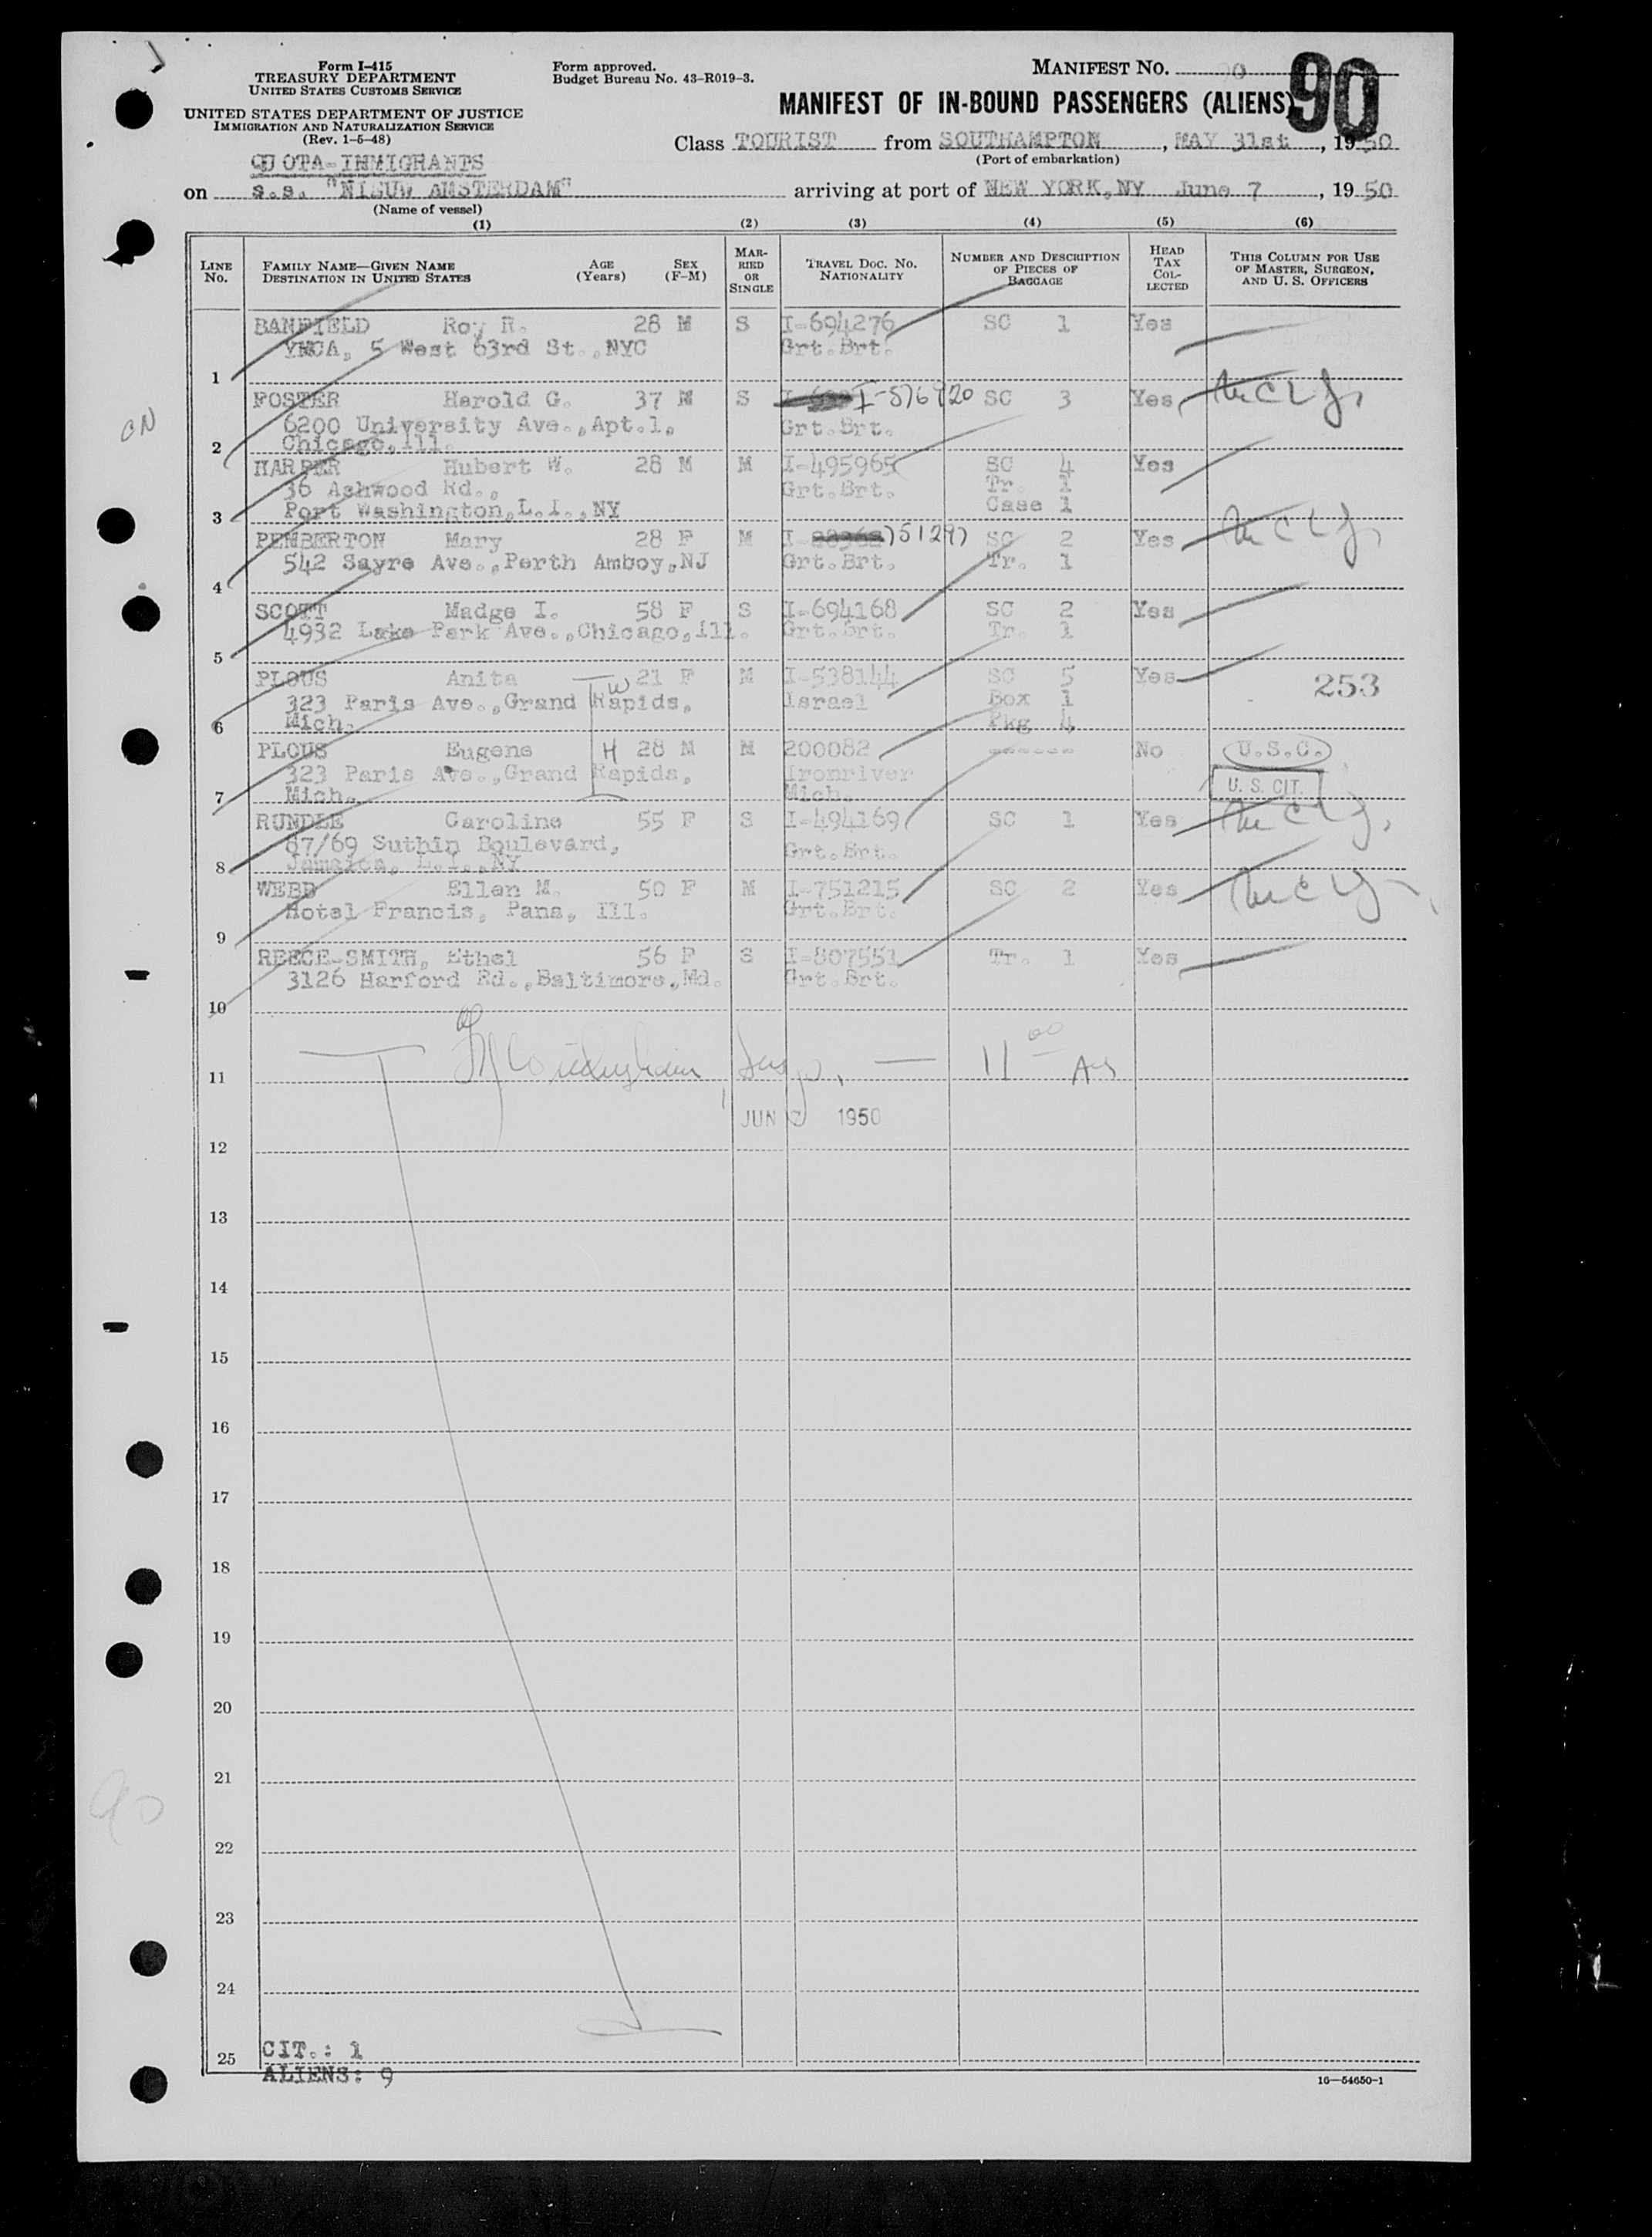 Form I-415
TREASURY DEPARTMENT
UNITED STATES CUSTOMS SERVICE
UNITED STATES DEPARTMENT OF JUSTICE
IMMIGRATION AND NATURALIZATION SERVICE
(Rev. 1-5-48)
Form approved.
Budget Bureau No. 43-R019-3.
MANIFEST NO. 90
90
MANIFEST OF IN-BOUND PASSENGERS (ALIENS)
Class TOURIST from SOUTHAMPTON, MAY 31st, 1950
(Port of embarkation)
QUOTA-IMMIGRANTS
on s.s. "NIEUW AMSTERDAM" arriving at port of NEW YORK,NY June 7, 1950
(Name of vessel)
(1) (2) (3) (4) (5) (6)
LINE NO.
FAMILY NAME—GIVEN NAME
DESTINATION IN UNITED STATES
AGE (Years)
SEX (F-M)
MARRIED OR SINGLE
TRAVEL DOC. NO. NATIONALITY
NUMBER AND DESCRIPTION OF PIECES OF BAGGAGE
HEAD TAX COLLECTED
THIS COLUMN FOR USE OF MASTER, SURGEON, AND U. S. OFFICERS
BANFIELD Roy R. 28 M S I-694276 SC 1 Yes
YMCA, 5 West 63rd St.,NYC Grt.Brt.
1
CN
FOSTER Harold G. 37 M S SC 3 Yes
6200 University Ave.,Apt.1, Grt.Brt.
2 Chicago,Ill.
HARPER Hubert W. 28 M M I-495965 SC 4 Yes
36 Ashwood Rd., Grt.Brt. Tr. 1
3 Port Washington,L.I.,NY Case 1
PEMBERTON Mary 28 F M I- 751297 SC 2 Yes
542 Sayre Ave.,Perth Amboy,NJ Grt.Brt. Tr. 1
4
SCOTT Madge I. 58 F S I-694168 SC 2 Yes
4932 Lake Park Ave.,Chicago,Ill. Grt.Brt. Tr. 1
5
PLOUS Anita W 21 F M I-538144 SC 5 Yes 253
323 Paris Ave.,Grand Rapids, Israel Box 1
6 Mich. Pkg 4
PLOUS Eugene H 28 M M 200082 ------ No U.S.C.
323 Paris Ave.,Grand Rapids, Ironriver U. S. CIT.
7 Mich. Mich.
RUNDLE Caroline 55 F S I-494169 SC 1 Yes
87/69 Suthin Boulevard, Grt.Brt.
8 Jamaica, L.I.,NY
WEBB Ellen M. 50 F M I-751215 SC 2 Yes
Hotel Francis, Pana, Ill. Grt.Brt.
9
REECE-SMITH, Ethel 56 F S I-807551 Tr. 1 Yes
3126 Harford Rd.,Baltimore,Md. Grt.Brt.
10
11 11 00
JUN 1950
12
13
14
15
16
17
18
19
20
21
90
22
23
24
25
CIT.: 1
ALIENS: 9
16—54650-1